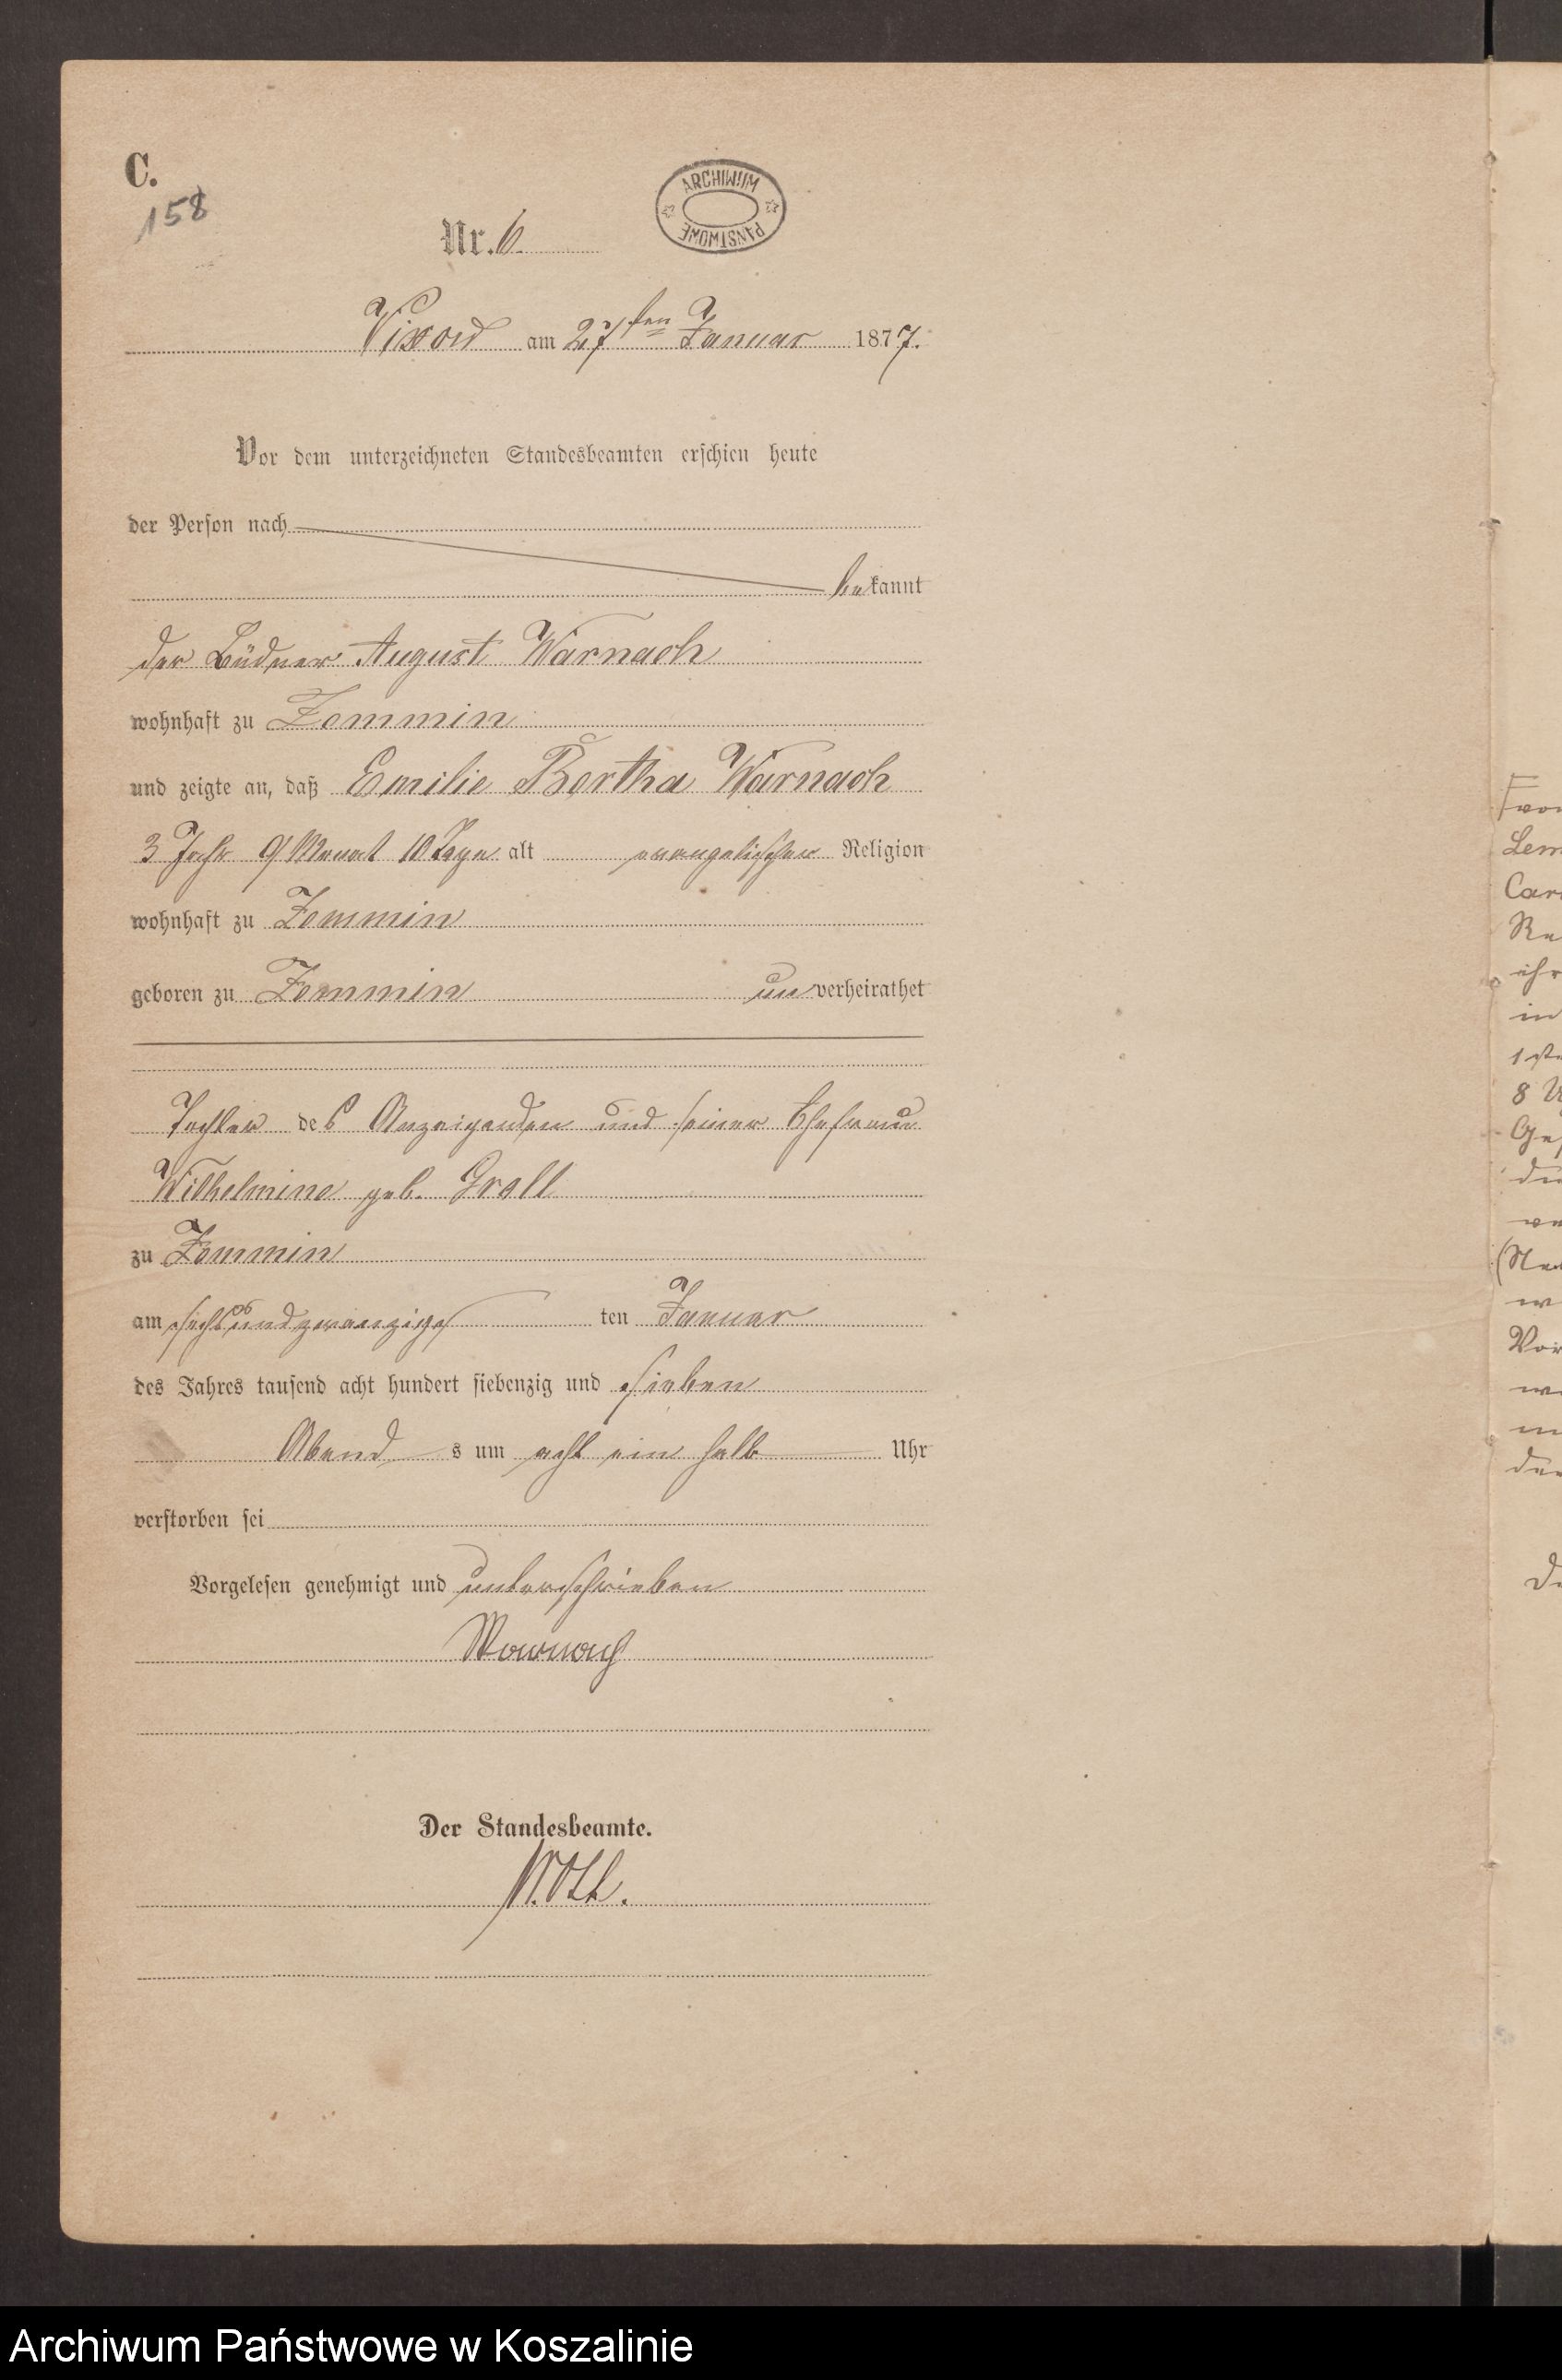 C.
158
Nr. 6.
ARCHIWUM PAŃSTWOWE
Vixow am 27ten Januar 1877.
Vor dem unterzeichneten Standesbeamten erschien heute
der Person nach
bekannt
der Büdner August Warnach
wohnhaft zu Zemmin
und zeigte an, daß Emilie Bertha Warnach
3 Jahr 9 Monat 10 Tage alt evangelischer Religion
wohnhaft zu Zemmin
geboren zu Zemmin unverheirathet
Tochter des Anzeigenden und seiner Ehefrau
Wilhelmine geb. Groll
zu Zemmin
am sechsundzwanzigs ten Januar
des Jahres tausend acht hundert siebenzig und sieben
Abend s um acht ein halb Uhr
verstorben sei
Vorgelesen genehmigt und unterschrieben
Warnach
Der Standesbeamte.
Archiwum Państwowe w Koszalinie